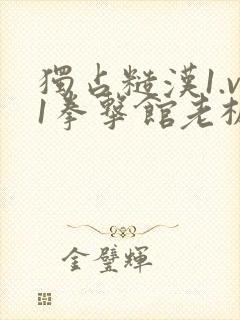 獨占糙漢1.v
1拳擊館老板
金璧輝